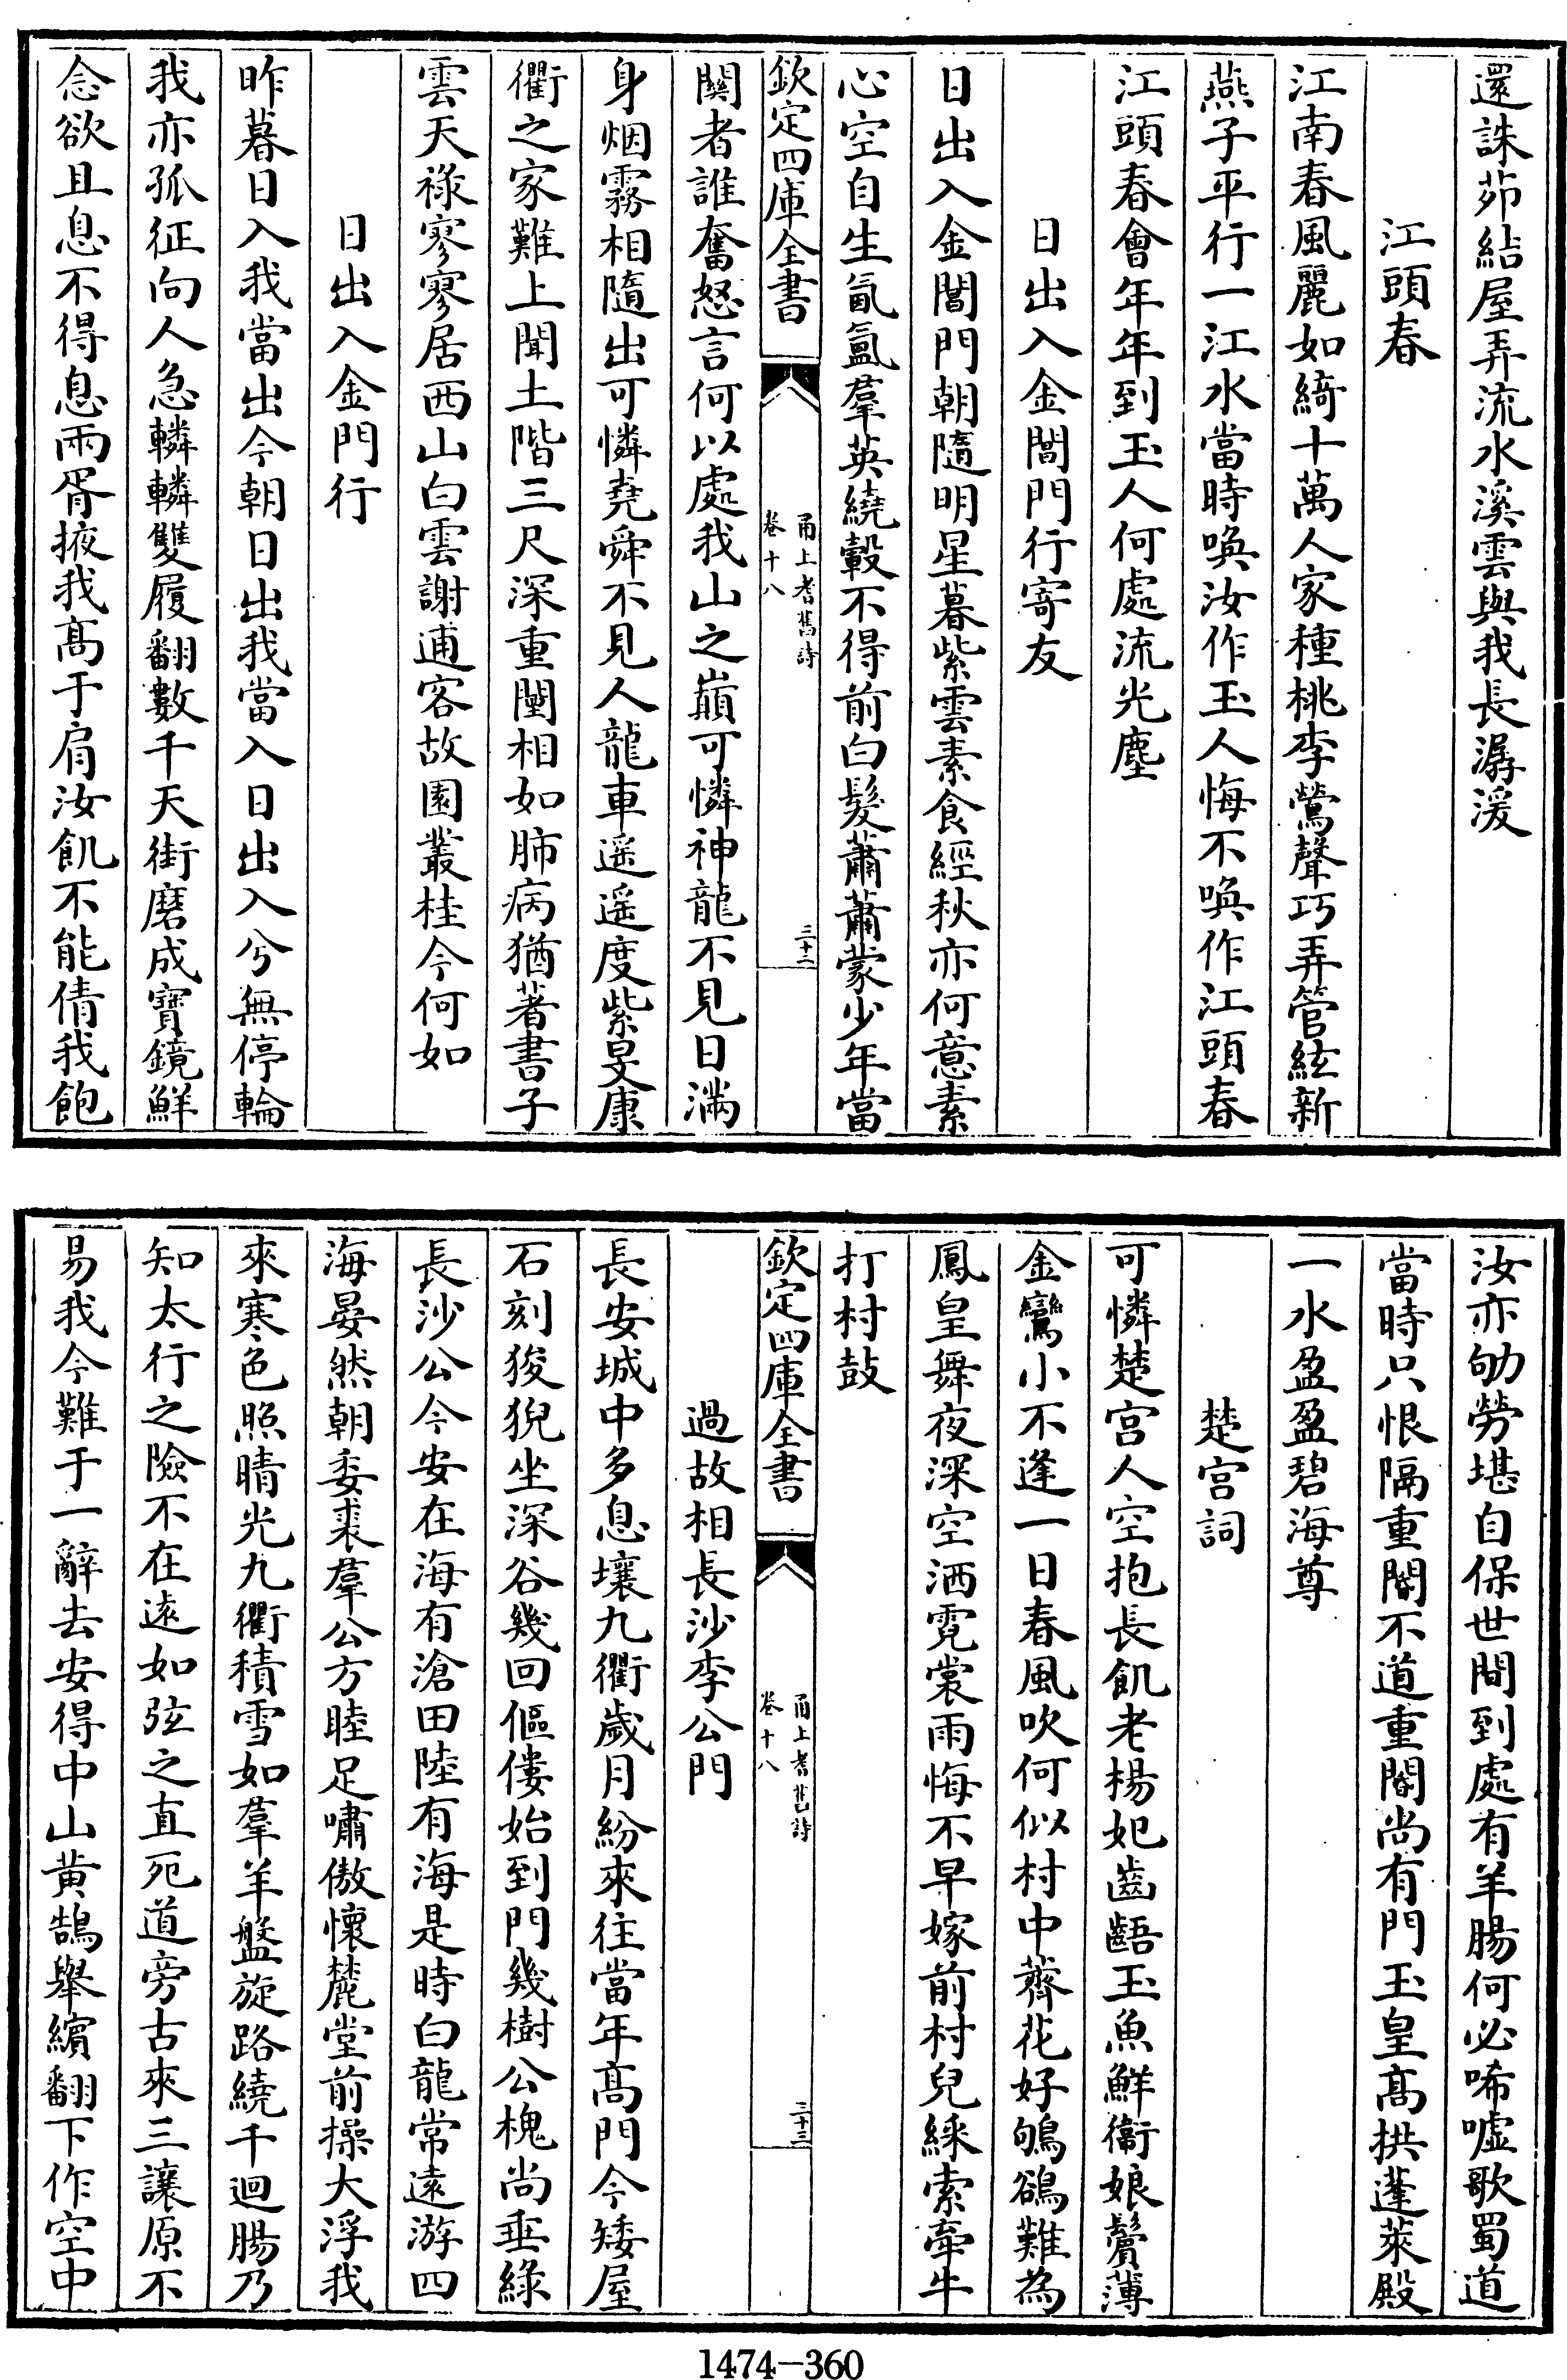 還誅茆結屋弄流水溪雲與我長潺湲
江頭春
江南春風麗如綺十萬人家種桃李鶯聲巧弄管絃新
燕子平行一江水當時喚汝作玉人悔不喚作江頭春
江頭春會年年到玉人何處流光塵
日出入金閶門行寄友
日出入金閶門朝隨明星暮紫雲素食經秋亦何意素
心空自生氤氳羣英繞轂不得前白髮蕭蕭蒙少年當
欽定四庫全書
甬上耆舊詩
卷十八
三十二
關者誰奮怒言何以處我山之巔可憐神龍不見日滿
身烟霧相隨出可憐堯舜不見人龍車遥遥度紫旻康
衢之家難上聞土階三尺深重闉相如肺病猶著書子
雲天祿寥寥居西山白雲謝逋客故園叢桂今何如
日出入金門行
昨暮日入我當出今朝日出我當入日出入兮無停輪
我亦孤征向人急轔轔雙履翻數千天街磨成寶鏡鮮
念欲且息不得息兩胥掖我髙于肩汝飢不能倩我飽
汝亦劬勞堪自保世間到處有羊腸何必唏噓歌蜀道
當時只恨隔重閽不道重閽尚有門玉皇髙拱蓬萊殿
一水盈盈碧海尊
楚宫詞
可憐楚宫人空抱長飢老楊妃齒齬玉魚鮮衛娘鬢薄
金鸞小不逢一日春風吹何似村中薺花好鴝鵒難為
鳳皇舞夜深空洒霓裳雨悔不早嫁前村兒綵索牽牛
打村鼓
欽定四庫全書
甬上耆舊詩
卷十八
三十三
過故相長沙李公門
長安城中多息壤九衢歲月紛來往當年髙門今矮屋
石刻狻猊坐深谷幾回傴僂始到門幾樹公槐尚垂綠
長沙公今安在海有滄田陸有海是時白龍常遠游四
海晏然朝委裘羣公方睦足嘯傲懷麓堂前操大浮我
來寒色照晴光九衢積雪如羣羊盤旋路繞千迴腸乃
知太行之險不在遠如弦之直死道旁古來三讓原不
易我今難于一辭去安得中山黄鵠舉繽翻下作空中
1474-360